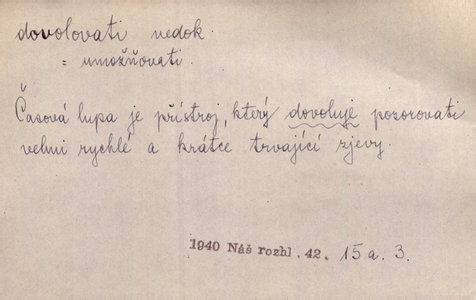 dovolovati nedok.
= umožňovati.
Časová lupa je přístroj, který dovoluje pozorovati
velmi rychlé a krátce trvající zjevy.
1940 Náš rozhl. 42. 15 a. 3.